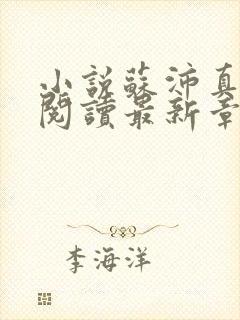 小説蘇沛真
閱讀最新章
李海洋